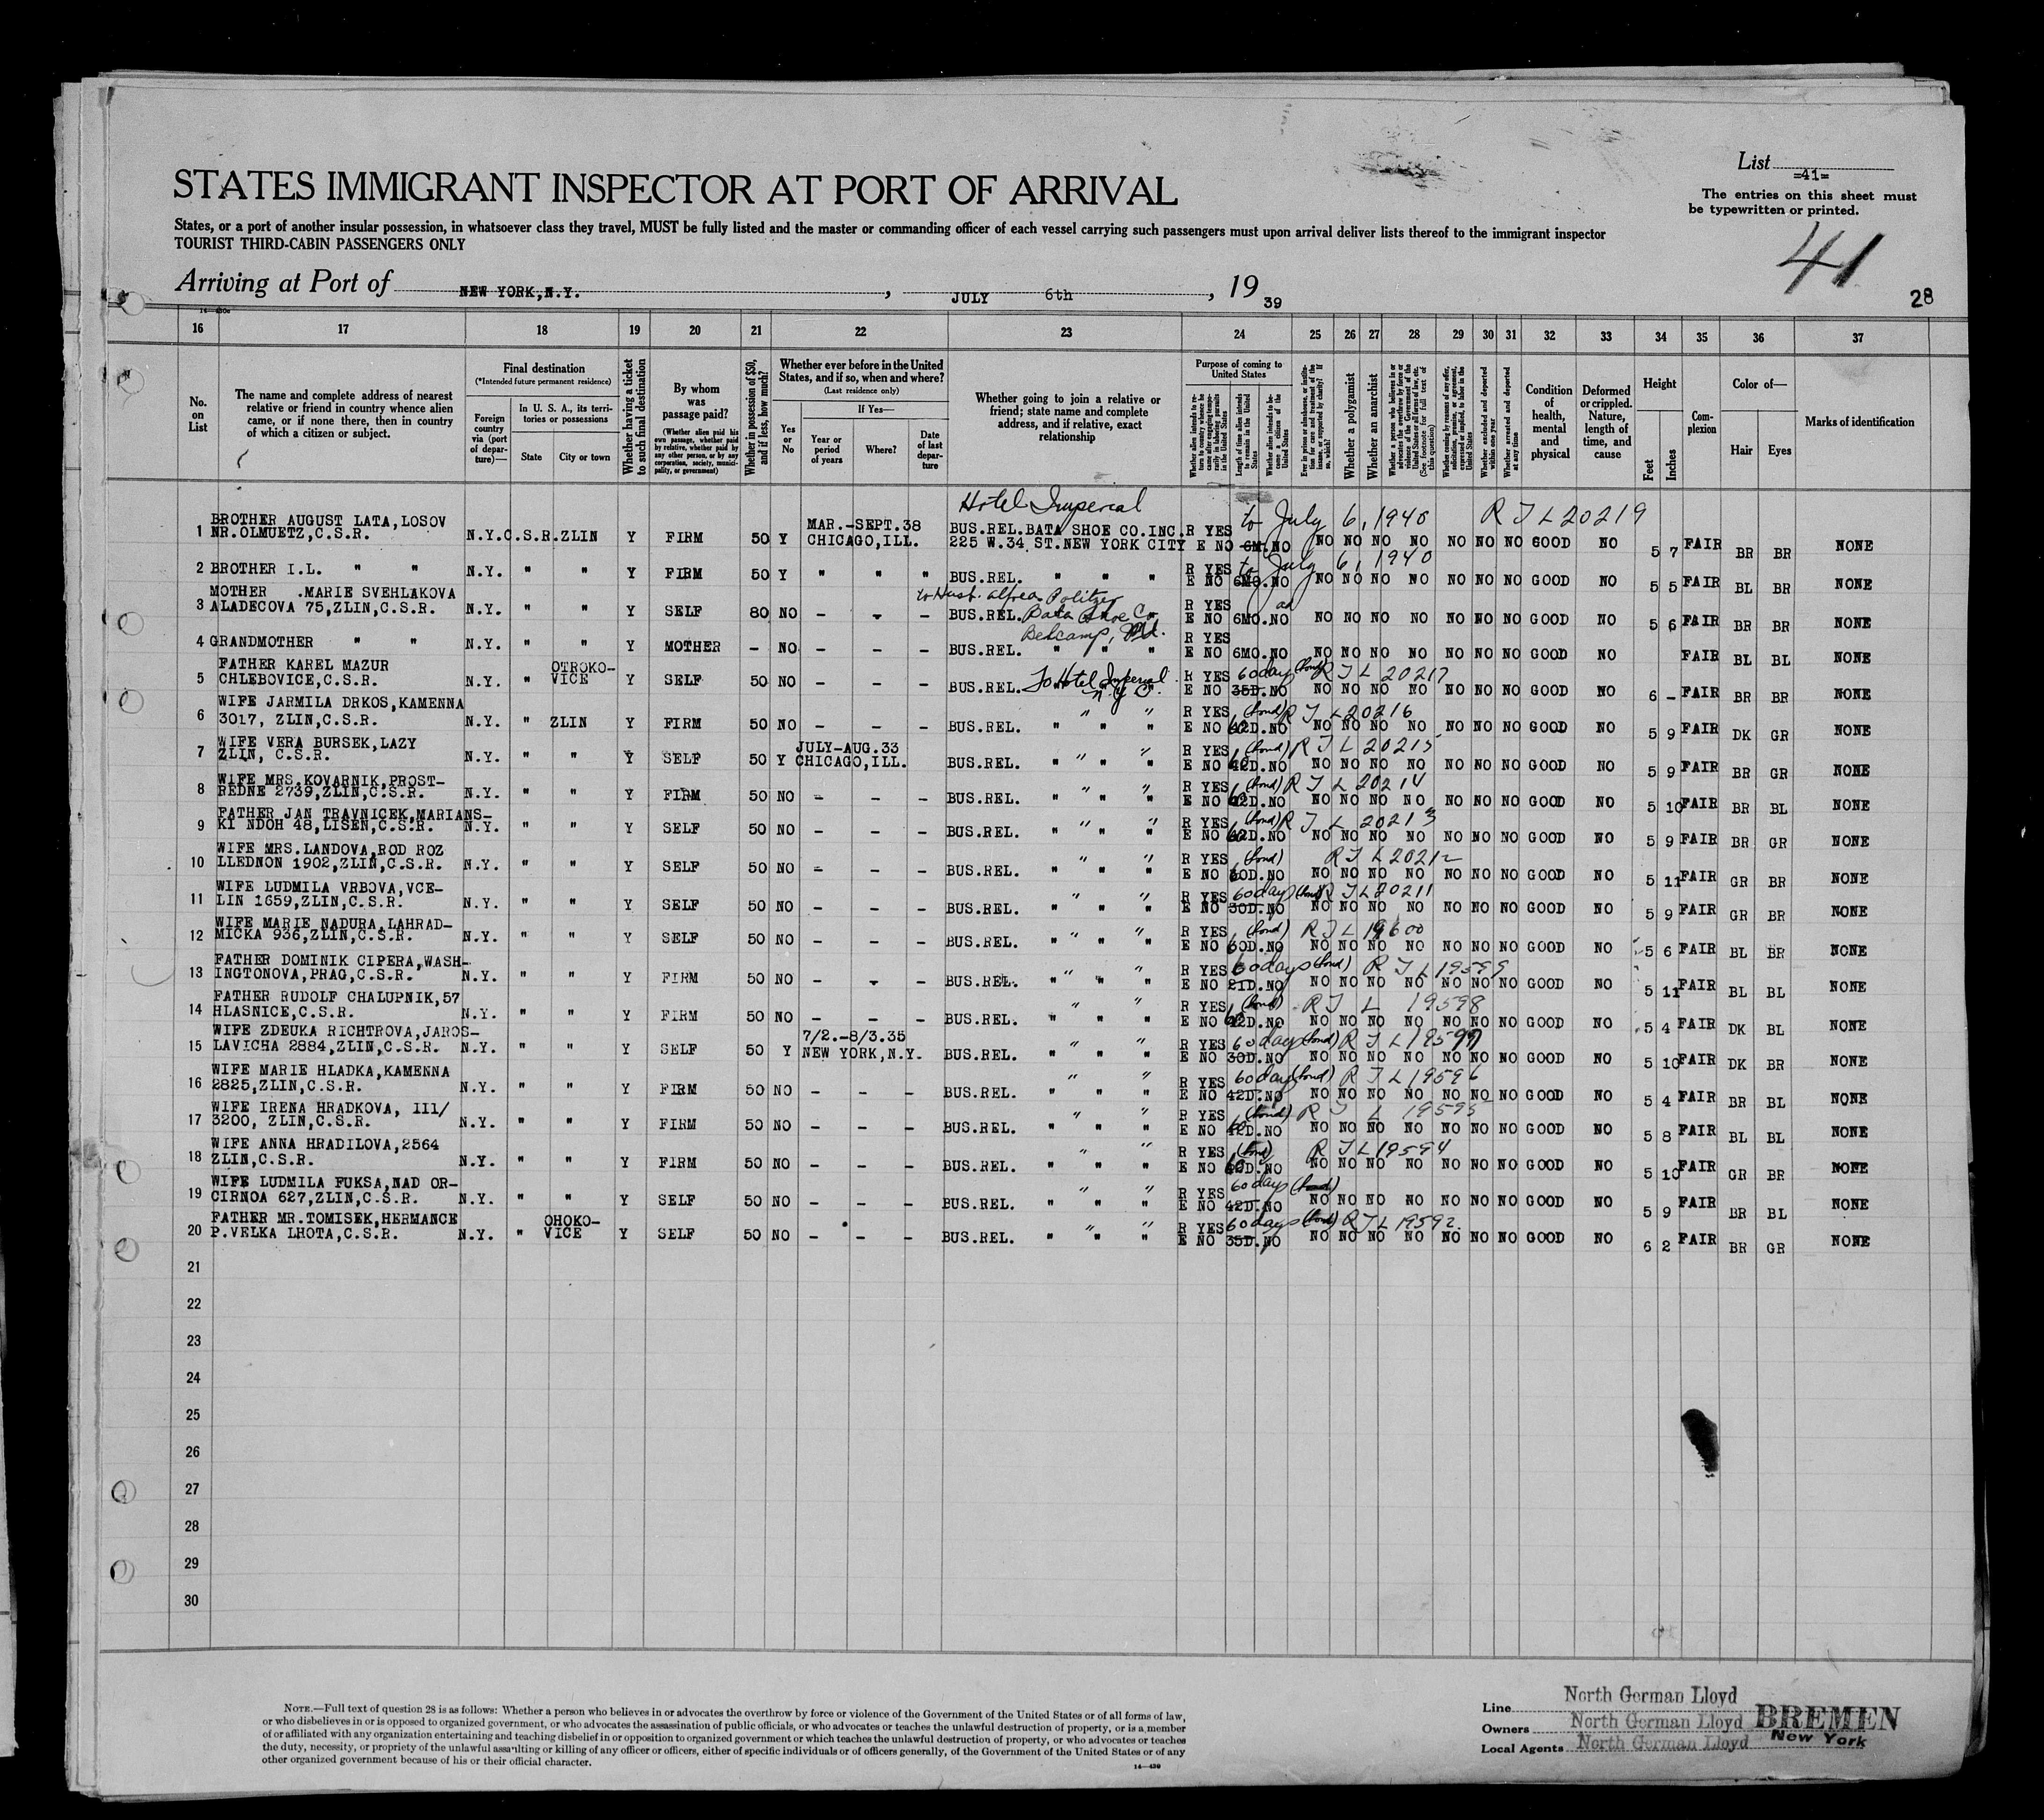 List =41=
The entries on this sheet must
be typewritten or printed.
41
28
STATES IMMIGRANT INSPECTOR AT PORT OF ARRIVAL
States, or a port of another insular possession, in whatsoever class they travel, MUST be fully listed and the master or commanding officer of each vessel carrying such passengers must upon arrival deliver lists thereof to the immigrant inspector
TOURIST THIRD-CABIN PASSENGERS ONLY
Arriving at Port of NEW YORK,N.Y. , JULY 6th , 19 39
16 17 18 19 20 21 22 23 24 25 26 27 28 29 30 31 32 33 34 35 36 37
No. on List
The name and complete address of nearest relative or friend in country whence alien came, or if none there, then in country of which a citizen or subject.
Final destination
(*Intended future permanent residence)
Foreign country via (port of departure)—
In U. S. A., its territories or possessions
State
City or town
Whether having a ticket to such final destination
By whom was passage paid?
(Whether alien paid his own passage, whether paid by relative, whether paid by any other person, or by any corporation, society, municipality, or government)
Whether in possession of $50, and if less, how much?
Whether ever before in the United States, and if so, when and where?
(Last residence only)
Yes or No
If Yes—
Year or period of years
Where?
Date of last departure
Whether going to join a relative or friend; state name and complete address, and if relative, exact relationship
Purpose of coming to United States
Whether a polygamist
Whether an anarchist
Condition of health, mental and physical
Deformed or crippled. Nature, length of time, and cause
Height
Feet
Inches
Complexion
Color of—
Hair
Eyes
Marks of identification
Hotel Imperial to July 6, 1940 R I L 20219
1 BROTHER AUGUST LATA,LOSOV NR.OLMUETZ,C.S.R. N.Y. C.S.R. ZLIN Y FIRM 50 Y MAR.-SEPT.38 CHICAGO,ILL. BUS.REL.BATA SHOE CO.INC. 225 W.34 ST.NEW YORK CITY R YES E NO 6M.NO NO NO NO NO NO NO NO GOOD NO 5 7 FAIR BR BR NONE
to July 6, 1940
2 BROTHER I.L. " " N.Y. " " Y FIRM 50 Y " " " BUS.REL. " " " R YES E NO 6MO.NO NO NO NO NO NO NO NO GOOD NO 5 5 FAIR BL BR NONE
to Husb. Alfred Politzer
3 MOTHER .MARIE SVEHLAKOVA ALADECOVA 75,ZLIN,C.S.R. N.Y. " " Y SELF 80 NO - - - BUS.REL. Bata Shoe Co R YES E NO 6MO.NO NO NO NO NO NO NO NO GOOD NO 5 6 FAIR BR BR NONE
Belcamp, Md.
4 GRANDMOTHER " " N.Y. " " Y MOTHER - NO - - - BUS.REL. " " " R YES E NO 6MO.NO NO NO NO NO NO NO NO GOOD NO FAIR BL BL NONE
5 FATHER KAREL MAZUR CHLEBOVICE,C.S.R. N.Y. " OTROKO-VICE Y SELF 50 NO - - - BUS.REL. To Hotel Imperial N.Y.C. R YES 60 days (bond) R I L 20217 E NO 35D.NO NO NO NO NO NO NO NO GOOD NO 6 - FAIR BR BR NONE
6 WIFE JARMILA DRKOS,KAMENNA 3017, ZLIN,C.S.R. N.Y. " ZLIN Y FIRM 50 NO - - - BUS.REL. " " R YES (bond) R I L 20216 E NO 42D.NO NO NO NO NO NO NO NO GOOD NO 5 9 FAIR DK GR NONE
7 WIFE VERA BURSEK,LAZY ZLIN, C.S.R. N.Y. " " Y SELF 50 Y JULY-AUG.33 CHICAGO,ILL. BUS.REL. " " " R YES (bond) R I L 20215 E NO 42D.NO NO NO NO NO NO NO NO GOOD NO 5 9 FAIR BR GR NONE
8 WIFE MRS.KOVARNIK,PROST-REDNE 2739,ZLIN,C.S.R. N.Y. " " Y FIRM 50 NO - - - BUS.REL. " " " R YES (bond) R I L 20214 E NO 42D.NO NO NO NO NO NO NO NO GOOD NO 5 10 FAIR BR BL NONE
9 FATHER JAN TRAVNICEK,MARIANS-KI NDOH 48,LISEN,C.S.R. N.Y. " " Y SELF 50 NO - - - BUS.REL. " " " R YES (bond) R I L 20213 E NO 42D.NO NO NO NO NO NO NO NO GOOD NO 5 9 FAIR BR GR NONE
10 WIFE MRS.LANDOVA,ROD ROZ LLEDNON 1902,ZLIN,C.S.R. N.Y. " " Y SELF 50 NO - - - BUS.REL. " " " R YES (bond) R I L 20212 E NO 60D.NO NO NO NO NO NO NO NO GOOD NO 5 11 FAIR GR BR NONE
11 WIFE LUDMILA VRBOVA,VCE-LIN 1659,ZLIN,C.S.R. N.Y. " " Y SELF 50 NO - - - BUS.REL. " " " R YES 60 days (bond) R I L 20211 E NO 30D.NO NO NO NO NO NO NO NO GOOD NO 5 9 FAIR GR BR NONE
12 WIFE MARIE NADURA,LAHRAD-MICKA 936,ZLIN,C.S.R. N.Y. " " Y SELF 50 NO - - - BUS.REL. " " " R YES (bond) R I L 19600 E NO 60D.NO NO NO NO NO NO NO NO GOOD NO 5 6 FAIR BL BR NONE
13 FATHER DOMINIK CIPERA,WASH-INGTONOVA,PRAG,C.S.R. N.Y. " " Y FIRM 50 NO - - - BUS.REL. " " " R YES 60 days (bond) R I L 19599 E NO 21D.NO NO NO NO NO NO NO NO GOOD NO 5 11 FAIR BL BL NONE
14 FATHER RUDOLF CHALUPNIK,57 HLASNICE,C.S.R. N.Y. " " Y FIRM 50 NO - - - BUS.REL. " " " R YES (bond) R I L 19598 E NO 42D.NO NO NO NO NO NO NO NO GOOD NO 5 4 FAIR DK BL NONE
15 WIFE ZDEUKA RICHTROVA,JAROS-LAVICHA 2884,ZLIN,C.S.R. N.Y. " " Y SELF 50 Y 7/2.-8/3.35 NEW YORK,N.Y. BUS.REL. " " " R YES 60 days (bond) R I L 19597 E NO 30D.NO NO NO NO NO NO NO NO GOOD NO 5 10 FAIR DK BR NONE
16 WIFE MARIE HLADKA,KAMENNA 2825,ZLIN,C.S.R. N.Y. " " Y FIRM 50 NO - - - BUS.REL. " " " R YES 60 days (bond) R I L 19596 E NO 42D.NO NO NO NO NO NO NO NO GOOD NO 5 4 FAIR BR BL NONE
17 WIFE IRENA HRADKOVA, III/ 3200, ZLIN,C.S.R. N.Y. " " Y FIRM 50 NO - - - BUS.REL. " " " R YES (bond) R I L 19595 E NO 42D.NO NO NO NO NO NO NO NO GOOD NO 5 8 FAIR BL BL NONE
18 WIFE ANNA HRADILOVA,2564 ZLIN,C.S.R. N.Y. " " Y FIRM 50 NO - - - BUS.REL. " " " R YES (bond) R I L 19594 E NO 42D.NO NO NO NO NO NO NO NO GOOD NO 5 10 FAIR GR BR NONE
19 WIFE LUDMILA FUKSA,NAD OR-CIRNOA 627,ZLIN,C.S.R. N.Y. " " Y SELF 50 NO - - - BUS.REL. " " " R YES 60 days (bond) E NO 42D.NO NO NO NO NO NO NO NO GOOD NO 5 9 FAIR BR BL NONE
20 FATHER MR.TOMISEK,HERMANCE P.VELKA LHOTA,C.S.R. N.Y. " OHOKO-VICE Y SELF 50 NO - - - BUS.REL. " " " R YES 60 days (bond) R I L 19592 E NO 35D.NO NO NO NO NO NO NO NO GOOD NO 6 2 FAIR BR GR NONE
21
22
23
24
25
26
27
28
29
30
NOTE.—Full text of question 28 is as follows: Whether a person who believes in or advocates the overthrow by force or violence of the Government of the United States or of all forms of law,
or who disbelieves in or is opposed to organized government, or who advocates the assassination of public officials, or who advocates or teaches the unlawful destruction of property, or is a member
of or affiliated with any organization entertaining and teaching disbelief in or opposition to organized government or which teaches the unlawful destruction of property, or who advocates or teaches
the duty, necessity, or propriety of the unlawful assaulting or killing of any officer or officers, either of specific individuals or of officers generally, of the Government of the United States or of any
other organized government because of his or their official character.
14—430
Line North German Lloyd
Owners North German Lloyd BREMEN
Local Agents North German Lloyd New York